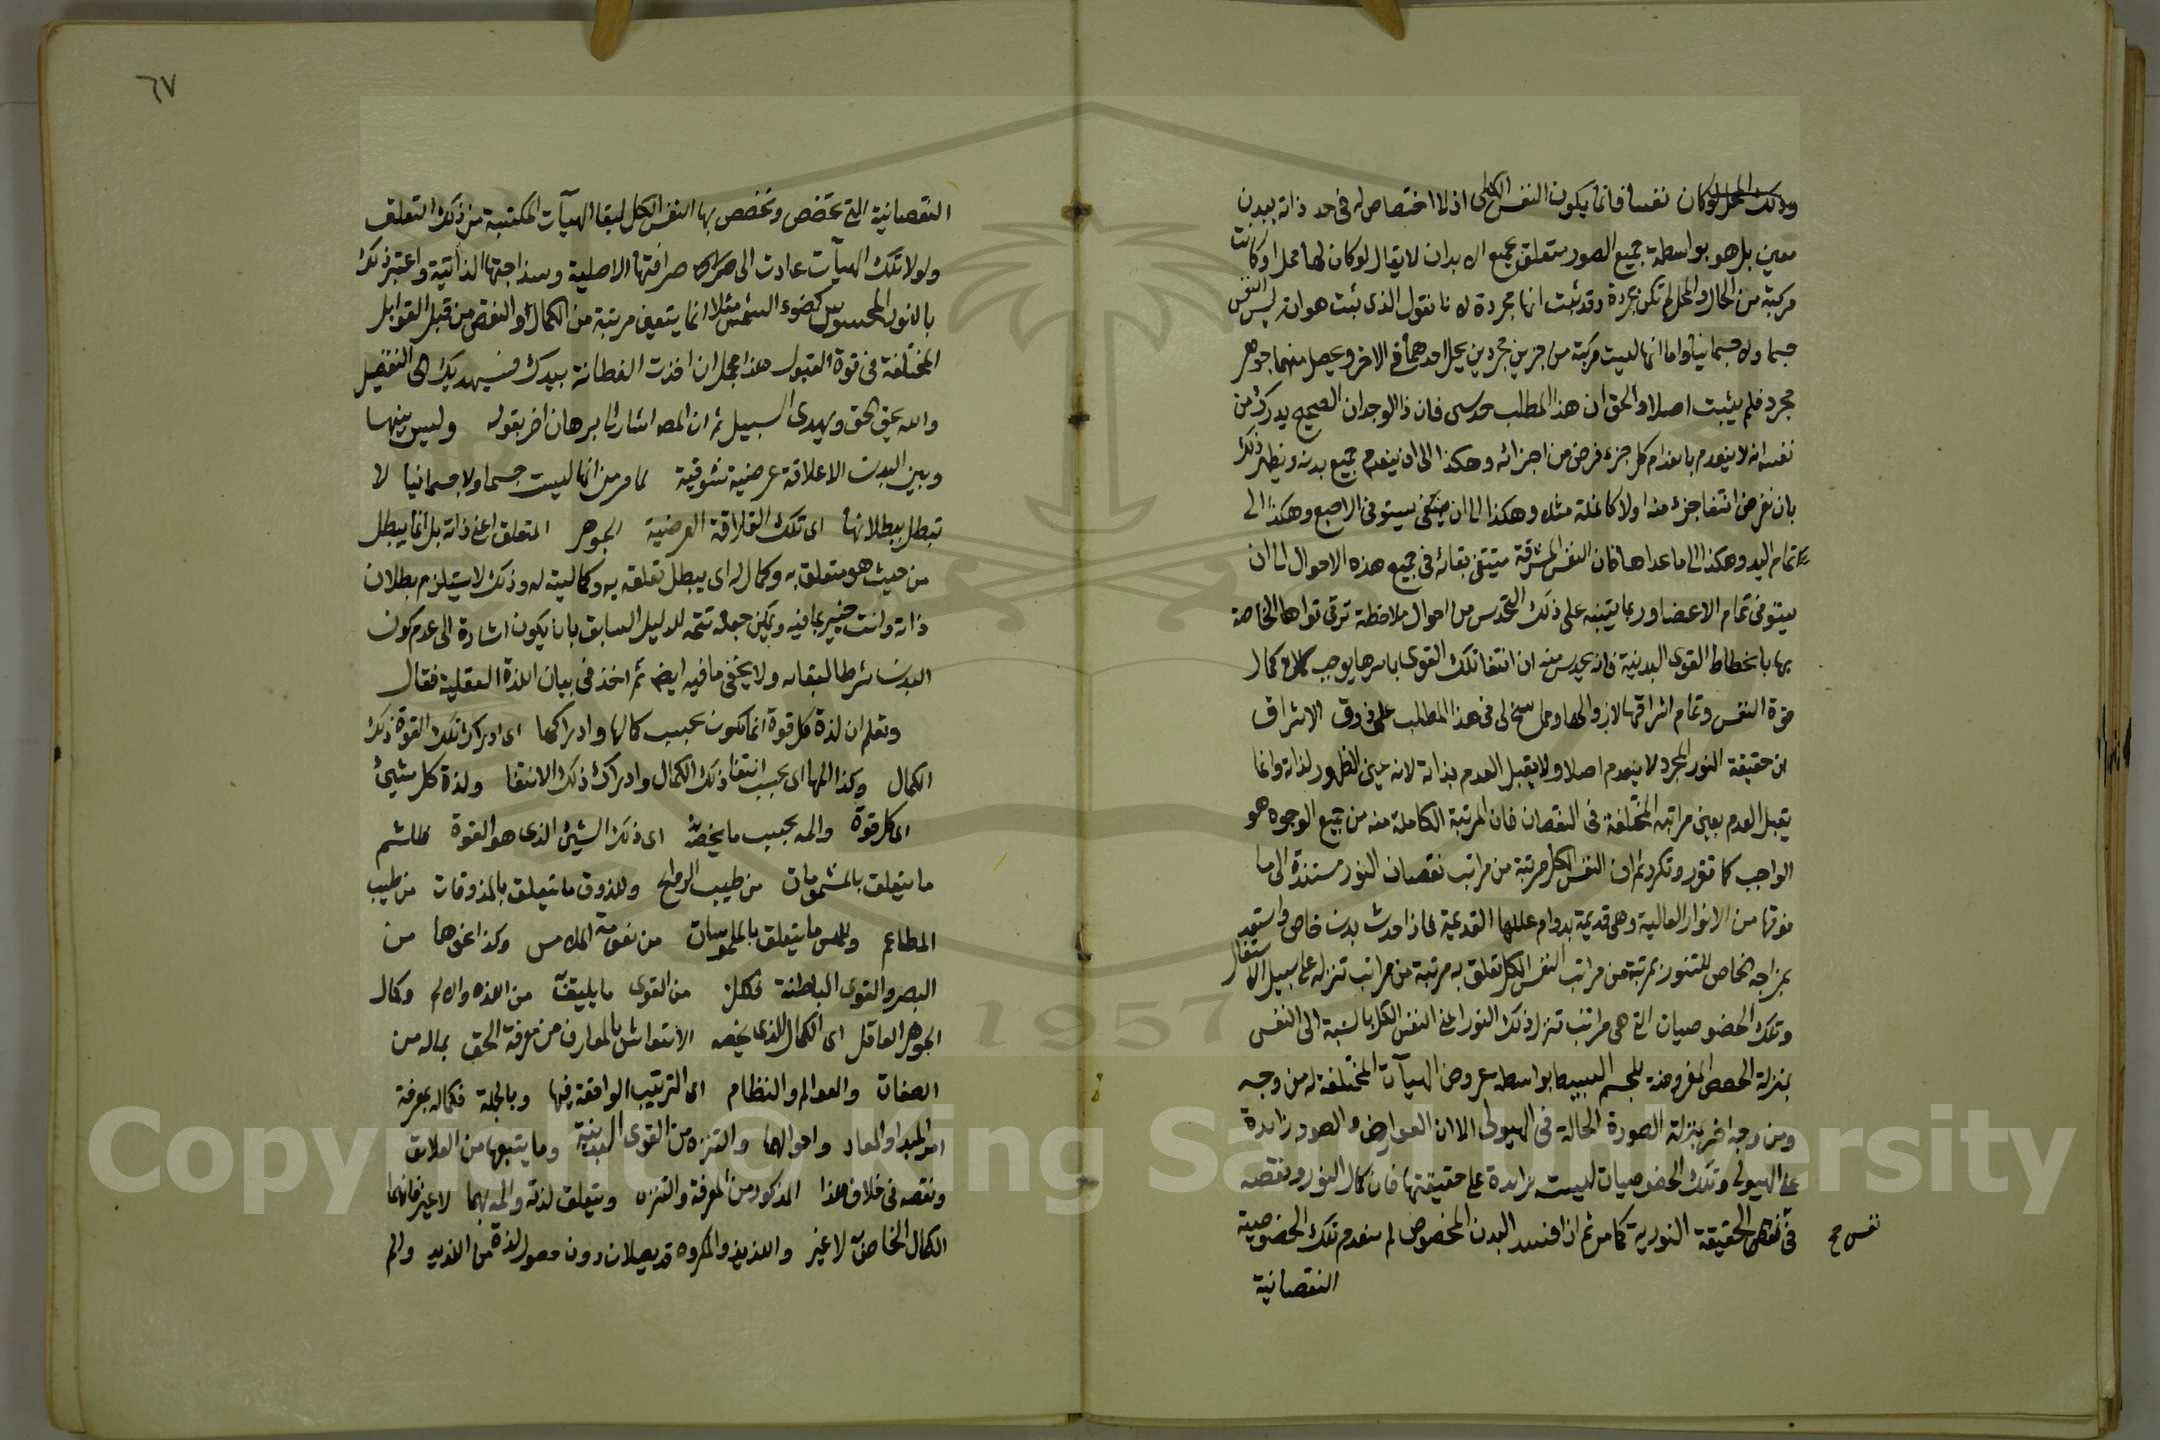 وذلك المحل لو كان نفسا فانما يكون النفس الكلى اذ لا اختصاص له فى حد ذاته ببدن
معين بل هو بواسطة جميع الصور متعلق بجميع الابدان لا يقال لو كان لها محل او كانت
مركبة من الحال والمحل لم تكن مجردة وقد ثبت انها مجردة لانا نقول الذى ثبت هو ان ليس النفس
جسما ولا جسمانيا واما انها ليست مركبة من جزين مجردين يحل احدهما فى الاخر ويحصل منهما جوهر
مجرد فلم يثبت اصلا والحق ان هذا المطلب حدسى فان ذا الوجدان الصحيح يدرك من
نفسه انه لا ينعدم بانعدام كل جزء فرض من اجزائه وهكذا الى ان ينعدم جميع بدنه ويظهر ذلك
بان نفرض انتفا جزء منه اولا كانملة مثلا وهكذا الى ان ينتفى يستوفى الاصبع وهكذا الى
تمام اليد وهكذا الى ما عداها فان النفس المشرقة متيقن بقائه فى جميع هذه الاحوال الى ان
يستوفى تمام الاعضا وربما يتنبه على ذلك التحدس من احوال ملاحظة ترقى قواها الخاصة
بها بانحطاط القوى البدنية فانه يحدس منه ان انتفا تلك القوى باسرها يوجب كمال
قوة النفس وتمام اشراقها لا زوالها ومما سنح لى فى هذا المطلب على ذوق الاشراق
ان حقيقة النور المجرد لا ينعدم اصلا ولا يقبل العدم بذاته لانه عين الظهور لذاته وانما
يقبل العدم بعض مراتبه المختلفة فى النقصان فان المرتبة الكاملة منه من جميع الوجوه هو
الواجب كما تقرر وتكرر ثم ان النفس الكل مرتبة من مراتب نقصان النور مستندة الى ما
فوقها من الانوار العالية وهى قديمة بدوام عللها القديمة فاذا حدث بدن خاص واستعد
بمزاجه الخاص للتنور بمرتبة من مراتب النفس الكل تعلق به مرتبة من مراتب تنزله على سبيل الاستقلال
وتلك الخصوصيات التى هى مراتب تنزل ذلك النور اعنى النفس الكل بالنسبة الى النفس
بمنزلة الحصص المفروضة للجسم البسيط بواسطة عروض الهيآت المختلفة له من وجه
ومن وجه اخر بمنزلة الصورة الحالة فى الهيولى الا ان العوارض والصور زايدة
على الهيولى وتلك الخصوصيات ليست زايدة على حقيقتها فان كمال النور ونقصه
فى نفس الحقيقة النورية كما مر ثم اذا فسد البدن المخصوص لم ينعدم تلك الخصوصية
نفس صح
النقصانية
٦٧
النقصانية التى تحصص وتخصص بها النفس الكل لبقا الهيآت المكتسبة من ذلك التعلق
ولولا تلك الهيآت عادت الى صرافتها الاصلية وسذاجتها الذاتية واعتبر ذلك
بالنور المحسوس كضوء الشمس مثلا انما يتعين مرتبته من الكمال والنقص من قبل القوابل
المختلفة فى قوة القبول هذا مجمل ان اخذت الفطانة بيدك فسيهديك الى التفصيل
والله يحق الحق ويهدى السبيل ثم ان المص اشار الى برهان اخر بقوله وليس بينها
وبين البدن الا علاقة عرضية شوقية لما مر من انها ليست جسما ولا جسمانيا لا
تبطل ببطلانها اى تلك العلاقة العرضية الجوهر المتعلق اعنى ذاته بل انما يبطل
من حيث هو متعلق به وكمال له اى يبطل تعلقه به وكماليته له وذلك لا يستلزم بطلان
ذاته وانت خبير بما فيه ويمكن جعله تتمة للدليل السابق بان يكون اشارة الى عدم كون
البدن شرطا لبقائه ولا يخفى ما فيه ايضا ثم اخذ فى بيان اللذة العقلية فقال
وتعلم ان لذة كل قوة انما تكون بحسب كمالها وادراكها اى ادراك تلك القوة ذلك
الكمال وكذا المها اى بحسب انتفا ذلك الكمال وادراك ذلك الانتفا ولذة كل شيئ
اى كل قوة والمه بحسب ما يخصه اى ذلك الشيئ الذى هو القوة فللشم
ما يتعلق بالمشمومات من طيب الروايح وللذوق ما يتعلق بالمذوقات من طيب
المطاعم وللمس ما يتعلق بالملموسات من نعومة الملامس وكذا نحوها من
البصر والقوى الباطنة فلكل من القوى ما يليق من اللذة والالم وكمال
الجوهر العاقل اى الكمال الذى يخصه الانتعاش بالمعارف من معرفة الحق بما له من
الصفات والعوالم والنظام اى الترتيب الواقعة فيها وبالجملة فكماله بمعرفة
امر المبدا والمعاد واحوالهما والتنزه من القوى البدنية وما يتبعها من العلائق
ونقصه فى خلاف هذا المذكور من المعرفة والتنزه ويتعلق لذته والمه بهما لا غير فانهما
الكمال الخاص لا غير واللذيذ والمكروه قد يصلان دون حصول لذة من اللذيذ والم
Copyright © King Saud University
1957